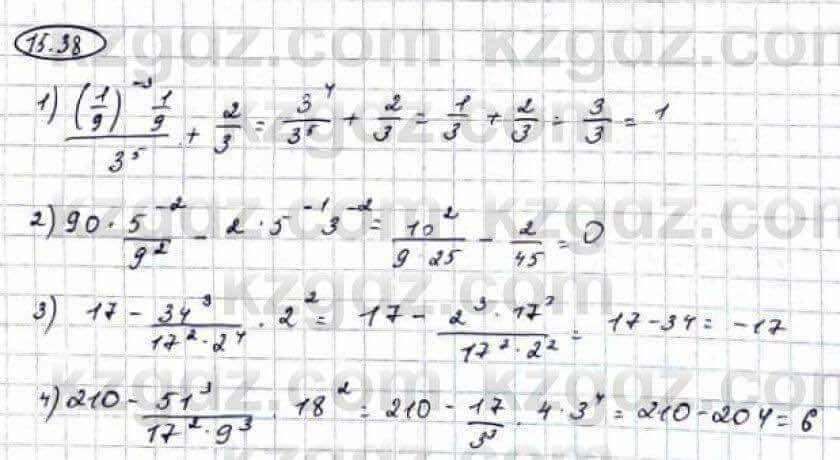 15.38
1) (1/9)^-3 1/9 / 3^5 + 2/3 = 3^4/3^5 + 2/3 = 1/3 + 2/3 = 3/3 = 1
2) 90 · 5^-2/9^2 - 2 · 5^-1 3^-2 = 10^2/9 · 25 - 2/45 = 0
3) 17 - 34^3/17^2 · 2^4 · 2^2 = 17 - 2^3 · 17^3/17^2 · 2^2 = 17 - 34 = -17
4) 210 - 51^3/17^2 · 9^3 · 18^2 = 210 - 17/3^3 · 4 · 3^4 = 210 - 204 = 6
kzgdz.com